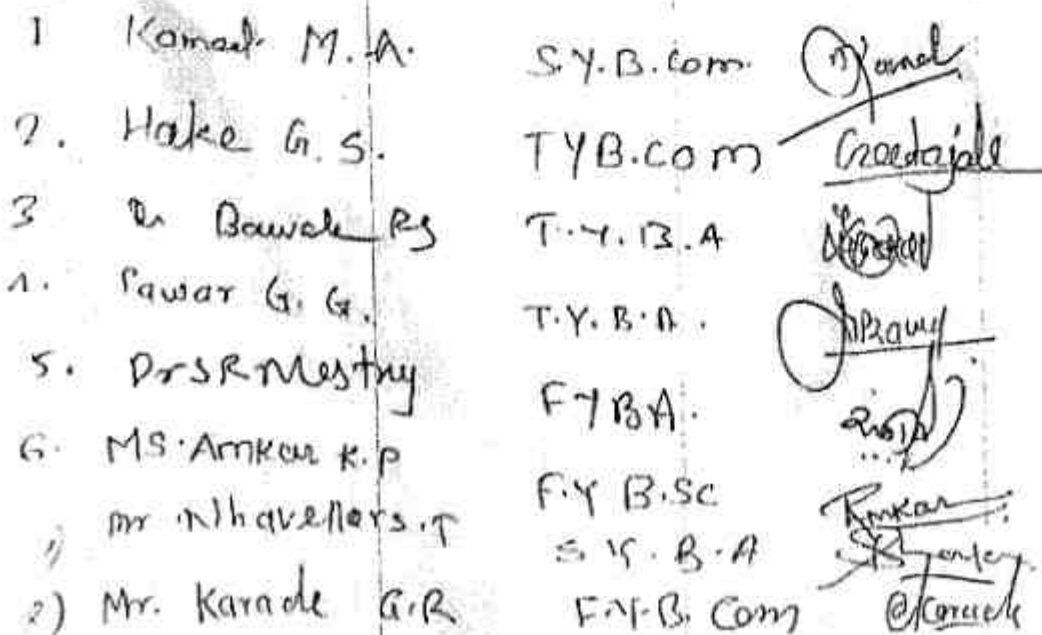 1 Kamael M.A. S.Y.B.Com. Kamael
2. Hake G.S. T Y B.COM Geetajali
3 Dr Bawale RS T.Y.B.A
4. Pawar G.G. T.Y.B.A.
5. Dr S R Mestry F Y B A.
6. MS. Amkar K.P F.Y B.SC Amkar
1) mr S.T S.Y.B.A
2) Mr. Karade G.R F.Y.B. Com Karade